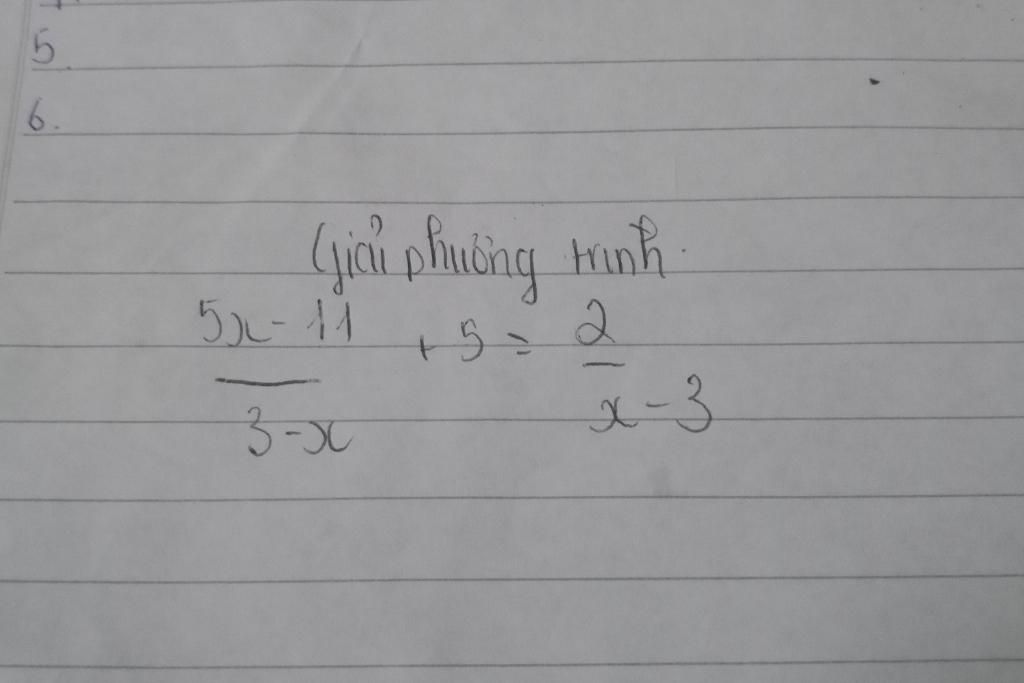 5.
6.
Giải phương trình.
5x - 11 / 3 - x + 5 = 2 / x - 3